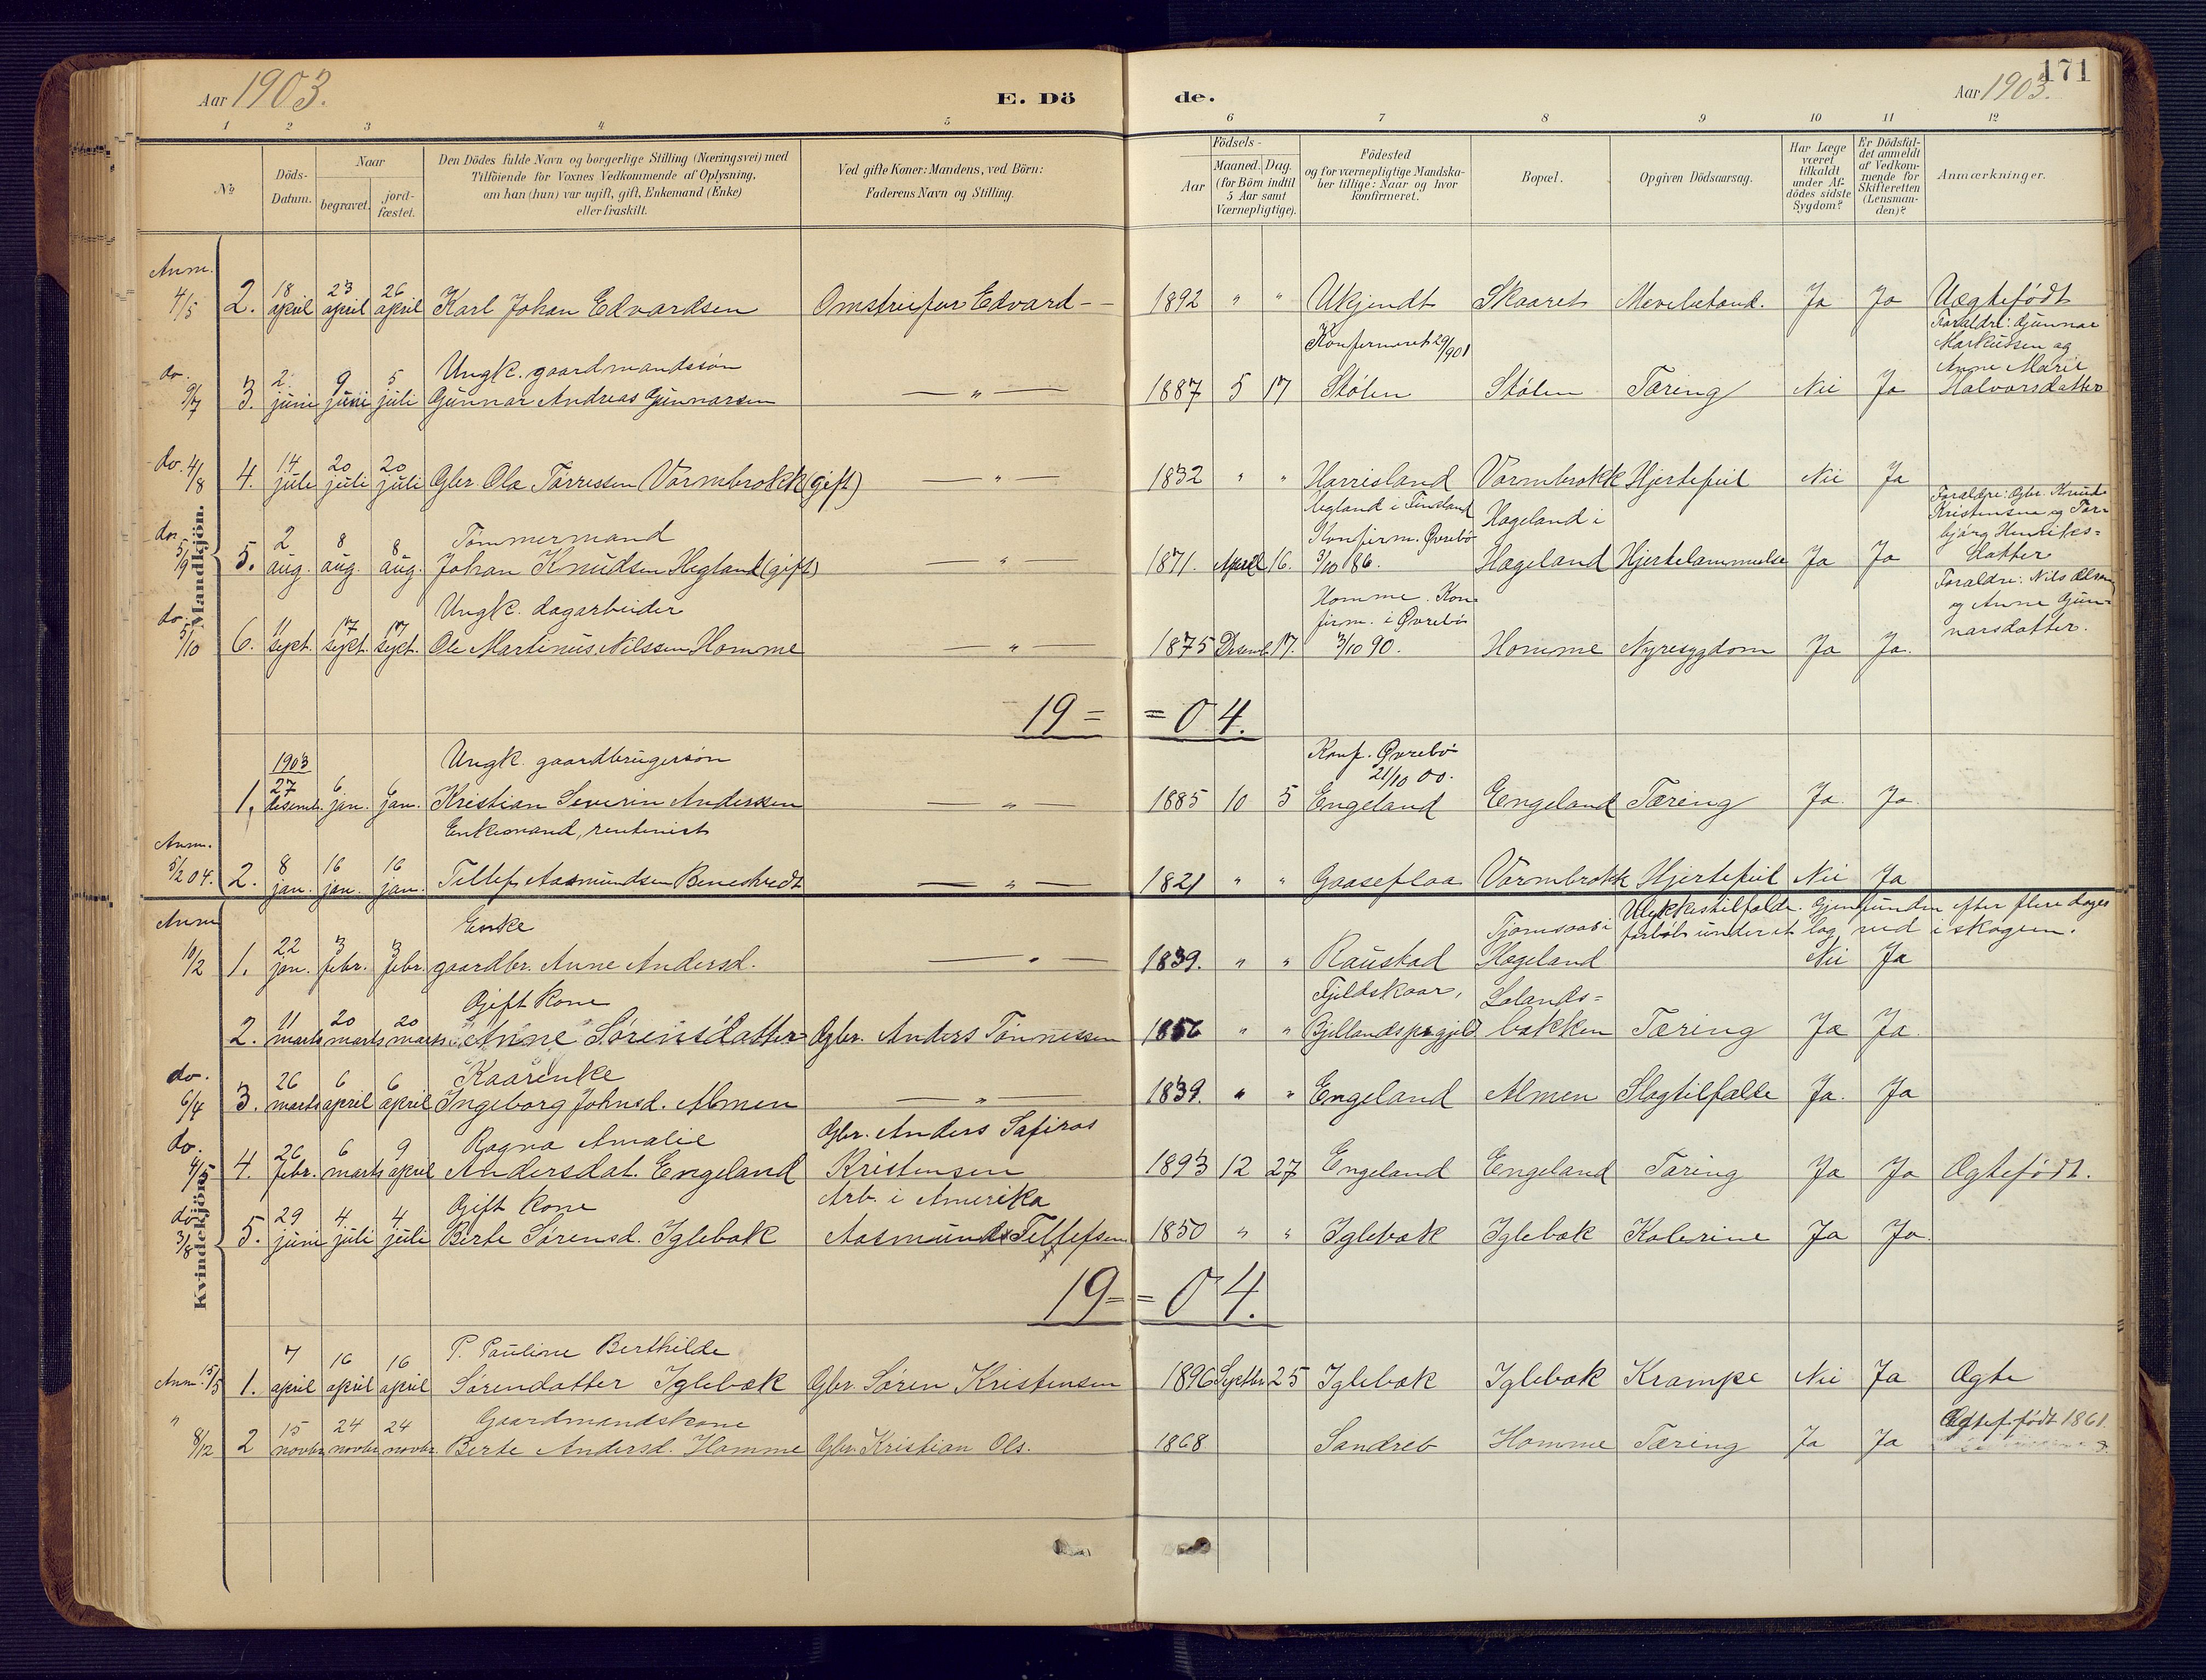 Aar 1903. E. Dö de. Aar 1903. 171
1 2 3 4 5 6 7 8 9 10 11 12
№
Döds-Datum.
Naar
begravet.
jord-fæstet.
Den Dödes fulde Navn og borgerlige Stilling (Næringsvei) med
Tilföiende for Voxnes Vedkommende af Oplysning,
om han (hun) var ugift, gift, Enkemand (Enke)
eller fraskilt.
Ved gifte Koner: Mandens, ved Börn:
Faderens Navn og Stilling.
Födsels-
Aar
Maaned. Dag.
(for Börn indtil
5 Aar samt
Værnepligtige).
Födested
og for værnepligtige Mandska-
ber tillige: Naar og hvor
konfirmeret.
Bopæl.
Opgiven Dödsaarsag.
Har Læge
været
tilkaldt
under Af-
dödes sidste
Sygdom?
Er Dödsfal-
det anmeldt
af Vedkom-
mende for
Skifteretten
(Lensman-
den)?
Anmærkninger.
Mandkjön.
Anm.
4/5 2. 18 april 23 april 26 april Karl Johan Edvardsen Omstreifer Edvard - - 1892 " " Ukjendt Skaaret Ja Ja Uægtefödt
Ungk. gaardmandssön Konfirmeret 29/901 Foraldre: Gunnar
Markussen og
Anne Marie
do. 9/7 3. 2 juni 9 juni 5 juli Gunnar Andreas Gunnarsen — " — 1887 5 17 Stølen Stølen Tæring Nei Ja Halvorsdatter
do. 4/8 4. 14 juli 20 juli 20 juli Gbr. Ola Tørressen Vormbrokk (gift) — " — 1832 " " Harrisland Vormbrokk Hjertefeil Nei Ja
Tömmermand Hegland i Findland
Konfirm. Øvrebö Hageland i Foraldre: Gbr. Knud
Kristensen og Tor-
björg Henriks-
do. 5/9 5. 2 aug. 8 aug. 8 aug. Johan Knudsen Hegland (gift) — " — 1871. April 16. 3/10 86. Hægeland Hjertelammelse Ja Ja datter
Ungk. dagarbeider Homme. Kon-
firm. i Øvrebö Foraldre: Nils Olsen
og Anne Gun-
narsdatter.
do. 5/10 6. 11 sept. 17 sept. 17 sept. Ole Martinus Nilssen Homme — " — 1875 Desemb. 17. 3/10 90. Homme Nyresygdom Ja Ja.
19 = = 04.
1903 Ungk. gaardbrugersön Konf. Øvrebö
21/10 00.
1. 27 desemb. 6 jan. 6 jan. Kristian Severin Anderssen — " — 1885 10 5 Engeland Engeland Tæring Ja. Ja.
Enkemand, rentenist
Anm. 5/2 04. 2. 8 jan. 16 jan. 16 jan. Tellef Aasmundsen Beneskredt — " — 1821 " " Gaaseflaa Vormbrokk Hjertefeil Nei Ja
Kvindekjön.
Enke Tjomsaas i Ulykkestilfælde. Gjenfunden efter flere dages
forlöb under et læg ved i skogen.
Anm 10/2 1. 22 jan. 3 febr. 3 febr. gaardbr. Anne Andersd. — " — 1839. " " Raustad Hægeland Nei Ja
Gift kone Fjeldskaar, Lolands=
2. 11 marts 20 marts 20 marts Anne Sørensdatter Gbr. Anders Tönnessen 1856 " " Bjellands prgjeld bakken Tæring Ja Ja.
Kaarenke
do. 6/4 3. 26 marts 6 april 6 april Ingeborg Johnsd. Almen — " — 1839. " " Engeland Almen Slagtilfælde Ja. Ja
Ragna Amalie Gbr. Anders Safiras
do. 4/5 4. 26 febr. 6 marts 9 april Andersdat. Engeland Kristensen 1893 12 27 Engeland Engeland Tæring Ja Ja Ægtefödt.
Gift kone Arb. i Amerika
do. 3/8 5. 29 juni 4 juli 4 juli Berte Sørensd. Iglebæk Aasmund Tellefsen 1850 " " Iglebæk Iglebæk Kolerine Ja Ja.
19 = = 04.
P. Pauline Berthilde
Anm. 15/5 1. 7 april 16 april 16 april Sørendatter Iglebæk Gbr. Søren Kristensen 1896 Septbr. 25 Iglebæk Iglebæk Krampe Nei Ja Ægte
Gaardmandskone Ægtef. födt 1861
" 8/12 2 15 novbr. 24 novbr. 24 novbr. Berte Andersd. Homme Gbr. Kristian Ols. 1868 Sandreb Homme Tæring Ja Ja